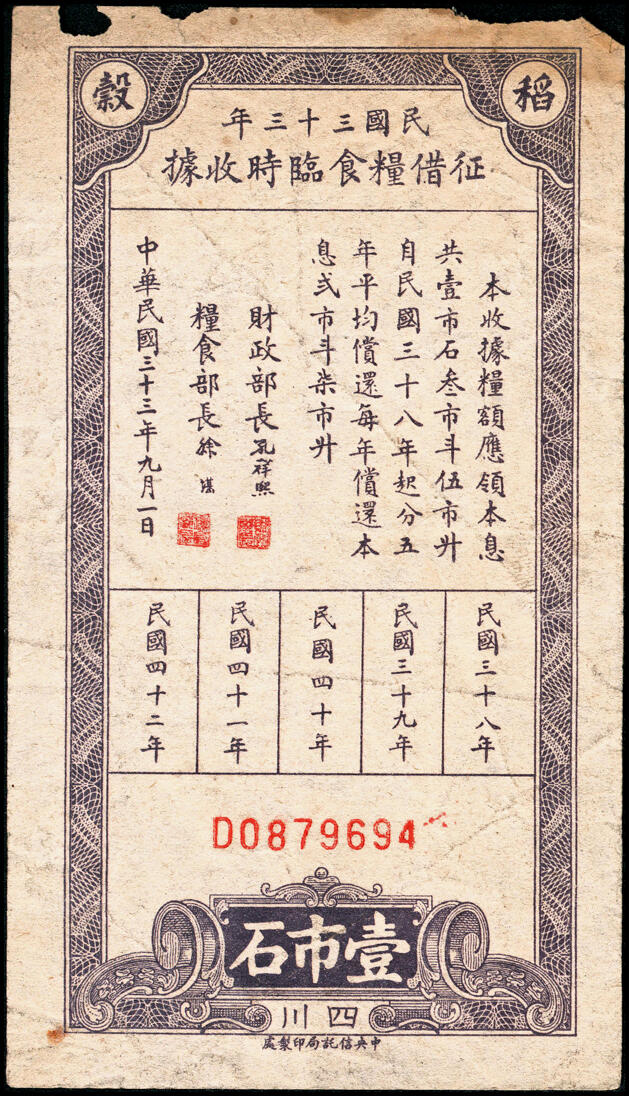 稻穀
民國三十三年
征借糧食臨時收據
本收據糧額應領本息
共壹市石叁市斗伍市升
自民國三十八年起分五
年平均償還每年償還本
息弍市斗柒市升
財政部長孔祥熙
糧食部長徐堪
中華民國三十三年九月一日
民國三十八年
民國三十九年
民國四十年
民國四十一年
民國四十二年
D0879694
壹市石
四川
中央信託局印製處